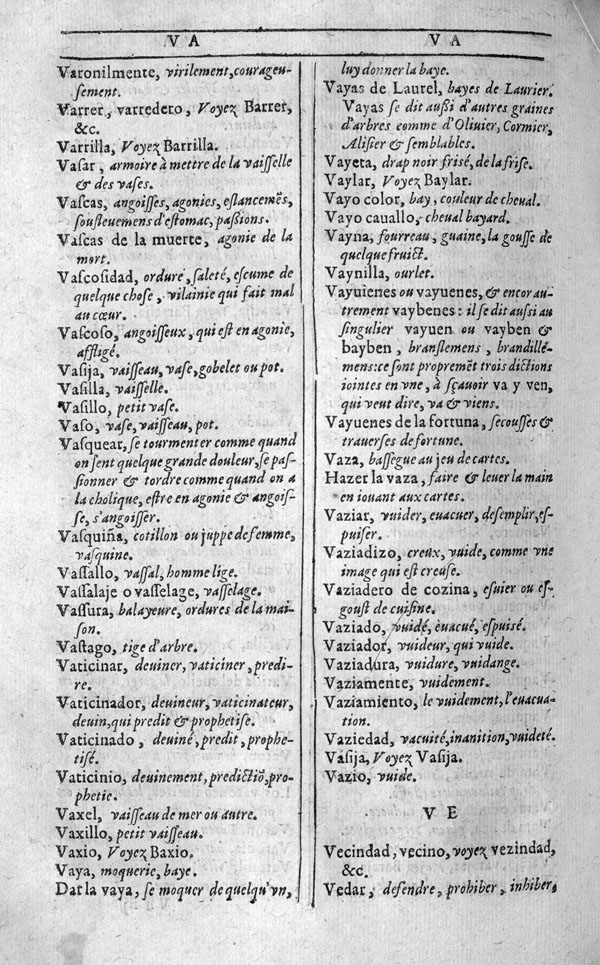 VA
Varonilmente, virilement, courageu-
sement.
Varrer, varredero, Voyez Barrer,
&c.
Varrilla, Voyez Barrilla.
Vasar, armoire à mettre de la vaisselle
& des vases.
Vascas, angoisses, agonies, eslancemẽs,
souslevemens d'estomac, paßions.
Vascas de la muerte, agonie de la
mort.
Vascosidad, ordure, saleté, escume de
quelque chose, vilainie qui fait mal
au cœur.
Vascoso, angoisseux, qui est en agonie,
affligé.
Vasija, vaisseau, vase, gobelet ou pot.
Vasilla, vaisselle.
Vasillo, petit vase.
Vaso, vase, vaisseau, pot.
Vasquear, se tourmenter comme quand
on sent quelque grande douleur, se pas-
sionner & tordre comme quand on a
la cholique, estre en agonie & angois-
se, s'angoisser.
Vasquiña, cotillon ou juppe de femme,
vasquine.
Vassallo, vassal, homme lige.
Vassalaje o vasselage, vasselage.
Vassura, balayeure, ordures de la mai-
son.
Vastago, tige d'arbre.
Vaticinar, deuiner, vaticiner, predi-
re.
Vaticinador, deuineur, vaticinateur,
deuin, qui predit & prophetise.
Vaticinado, deuiné, predit, prophe-
tisé.
Vaticinio, deuinement, predictiõ, pro-
phetie.
Vaxel, vaisseau de mer ou autre.
Vaxillo, petit vaisseau.
Vaxio, Voyez Baxio.
Vaya, moquerie, baye.
Dar la vaya, se moquer de quelqu'vn,
VA
luy donner la baye.
Vayas de Laurel, bayes de Laurier.
Vayas se dit außi d'autres graines
d'arbres comme d'Oliuier, Cormier,
Alisier & semblables.
Vayeta, drap noir frisé, de la frise.
Vaylar, Voyez Baylar.
Vayo color, bay, couleur de cheval.
Vayo cauallo, cheual bayard.
Vayna, fourreau, guaine, la gousse de
quelque fruict.
Vaynilla, ourlet.
Vayuienes ou vayuenes, & encor au-
trement vaybenes : il se dit aussi au
singulier vayuen ou vayben &
bayben, branslemens, brandillé-
mens: ce sont propremẽt trois dictions
iointes en vne, à sçauoir va y ven,
qui veut dire, va & viens.
Vayuenes de la fortuna, secousses &
trauerses de fortune.
Vaza, bassegue au jeu de cartes.
Hazer la vaza, faire & leuer la main
en iouant aux cartes.
Vaziar, vuider, euacuer, desemplir, es-
puiser.
Vaziadizo, creux, vuide, comme vne
image qui est creuse.
Vaziadero de cozina, esuier ou es-
goust de cuisine.
Vaziado, vuidé, euacué, espuisé.
Vaziador, vuideur, qui vuide.
Vaziadura, vuidure, vuidange.
Vaziamente, vuidement.
Vaziamiento, le vuidement, l'euacua-
tion.
Vaziedad, vacuité, inanition, vuideté.
Vasija, Voyez Vasija.
Vazio, vuide.
VE
Vecindad, vecino, voyez vezindad,
&c.
Vedar, defendre, prohiber, inhiber,